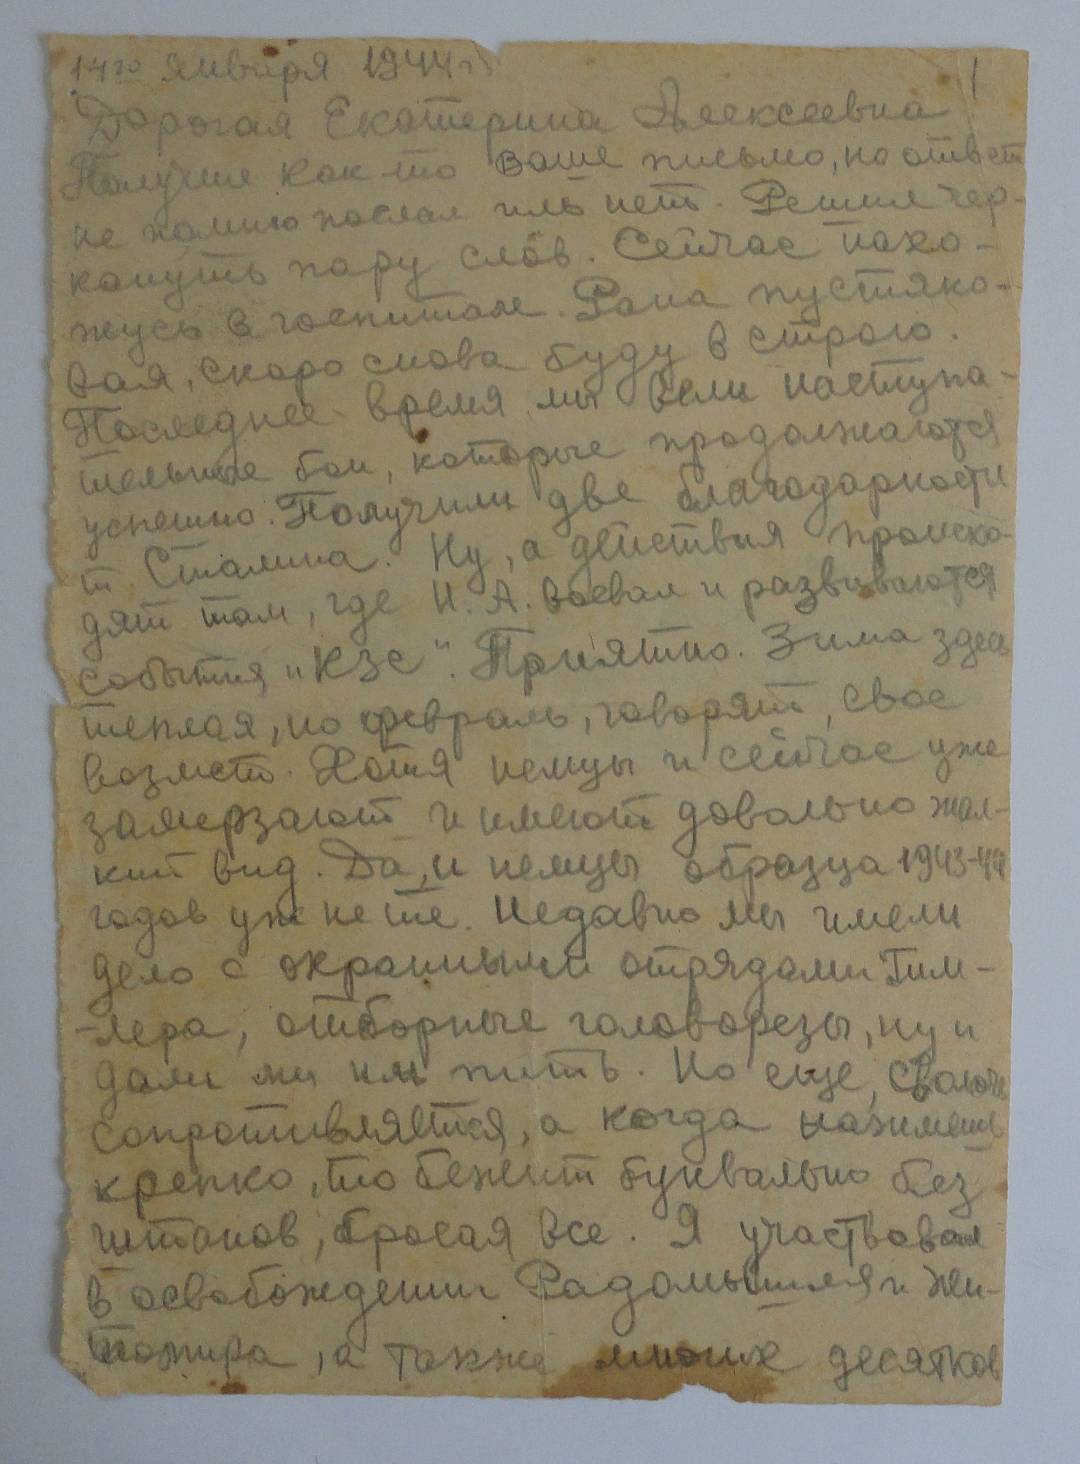 14го января 1944г. 1
Дорогая Екатерина Алексеевна
Получил как-то Ваше письмо, но ответ
не помню послал иль нет. Решил чер-
кануть пару слов. Сейчас нахо-
жусь в госпитале. Рана пустяко-
вая, скоро снова буду в строю.
Последнее время мы вели наступа-
тельные бои, которые продолжаются
успешно. Получили две благодарности
т. Сталина. Ну, а действия происхо-
дят там, где Н. А. воевал и развиваются
события „КЗС". Приятно. Зима здесь
теплая, но февраль, говорят, свое
возмет. Хотя немцы и сейчас уже
замерзают и имеют довольно жал-
кий вид. Да, и немцы образца 1943-44
годов уж не те. Недавно мы имели
дело с охранными отрядами Гим-
-лера, отборные головорезы, ну и
дали мы им жить. Но еще, сволочь
сопротивляется, а когда нажмешь
крепко, то бежит буквально без
штанов, бросая все. Я участвовал
в освобождении Радомышля и Жи-
томира, а также многих десятков